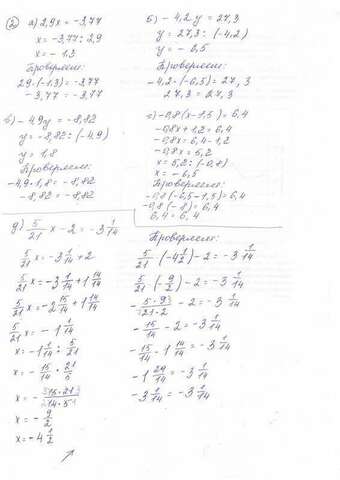 ② а) 2,9x = -3,77
x = -3,77 : 2,9
x = -1,3
Проверяем:
2,9·(-1,3) = -3,77
-3,77 = -3,77
б) -4,2y = 27,3
y = 27,3 : (-4,2)
y = -6,5
Проверяем:
-4,2·(-6,5) = 27,3
27,3 = 27,3
в) -4,9y = -8,82
y = -8,82 : (-4,9)
y = 1,8
Проверяем:
-4,9·1,8 = -8,82
-8,82 = -8,82
г) -0,8(x-1,5) = 6,4
-0,8x + 1,2 = 6,4
-0,8x = 6,4 - 1,2
-0,8x = 5,2
x = 5,2 : (-0,8)
x = -6,5
Проверяем:
-0,8(-6,5-1,5) = 6,4
-0,8(-8) = 6,4
6,4 = 6,4
д) 5/21 x - 2 = -3 1/14
5/21 x = -3 1/14 + 2
5/21 x = -3 1/14 + 1 14/14
5/21 x = -2 15/14 + 1 14/14
5/21 x = -1 1/14
x = -1 1/14 : 5/21
x = -15/14 · 21/5
x = -15·21/14·5
x = -9/2
x = -4 1/2
Проверяем:
5/21 (-4 1/2) - 2 = -3 1/14
5/21 (-9/2) - 2 = -3 1/14
-5·9/21·2 - 2 = -3 1/14
-15/14 - 2 = -3 1/14
-15/14 - 1 14/14 = -3 1/14
-1 29/14 = -3 1/14
-3 1/14 = -3 1/14